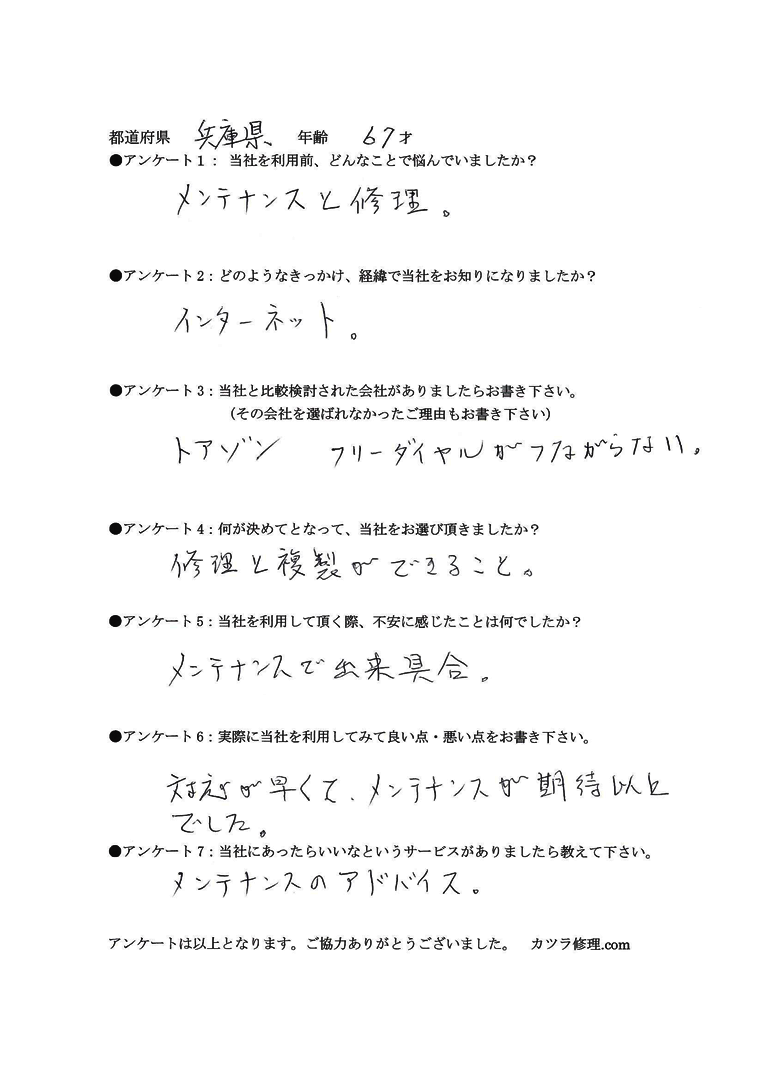 都道府県 兵庫県 年齢 67才
●アンケート1： 当社を利用前、どんなことで悩んでいましたか？
メンテナンスと修理。
●アンケート2：どのようなきっかけ、経緯で当社をお知りになりましたか？
インターネット。
●アンケート3：当社と比較検討された会社がありましたらお書き下さい。
（その会社を選ばれなかったご理由もお書き下さい）
トアゾン フリーダイヤルがつながらない。
●アンケート4：何が決めてとなって、当社をお選び頂きましたか？
修理と複製ができること。
●アンケート5：当社を利用して頂く際、不安に感じたことは何でしたか？
メンテナンスで出来具合。
●アンケート6：実際に当社を利用してみて良い点・悪い点をお書き下さい。
対応が早くて、メンテナンスが期待以上
でした。
●アンケート7：当社にあったらいいなというサービスがありましたら教えて下さい。
メンテナンスのアドバイス。
アンケートは以上となります。ご協力ありがとうございました。 カツラ修理.com